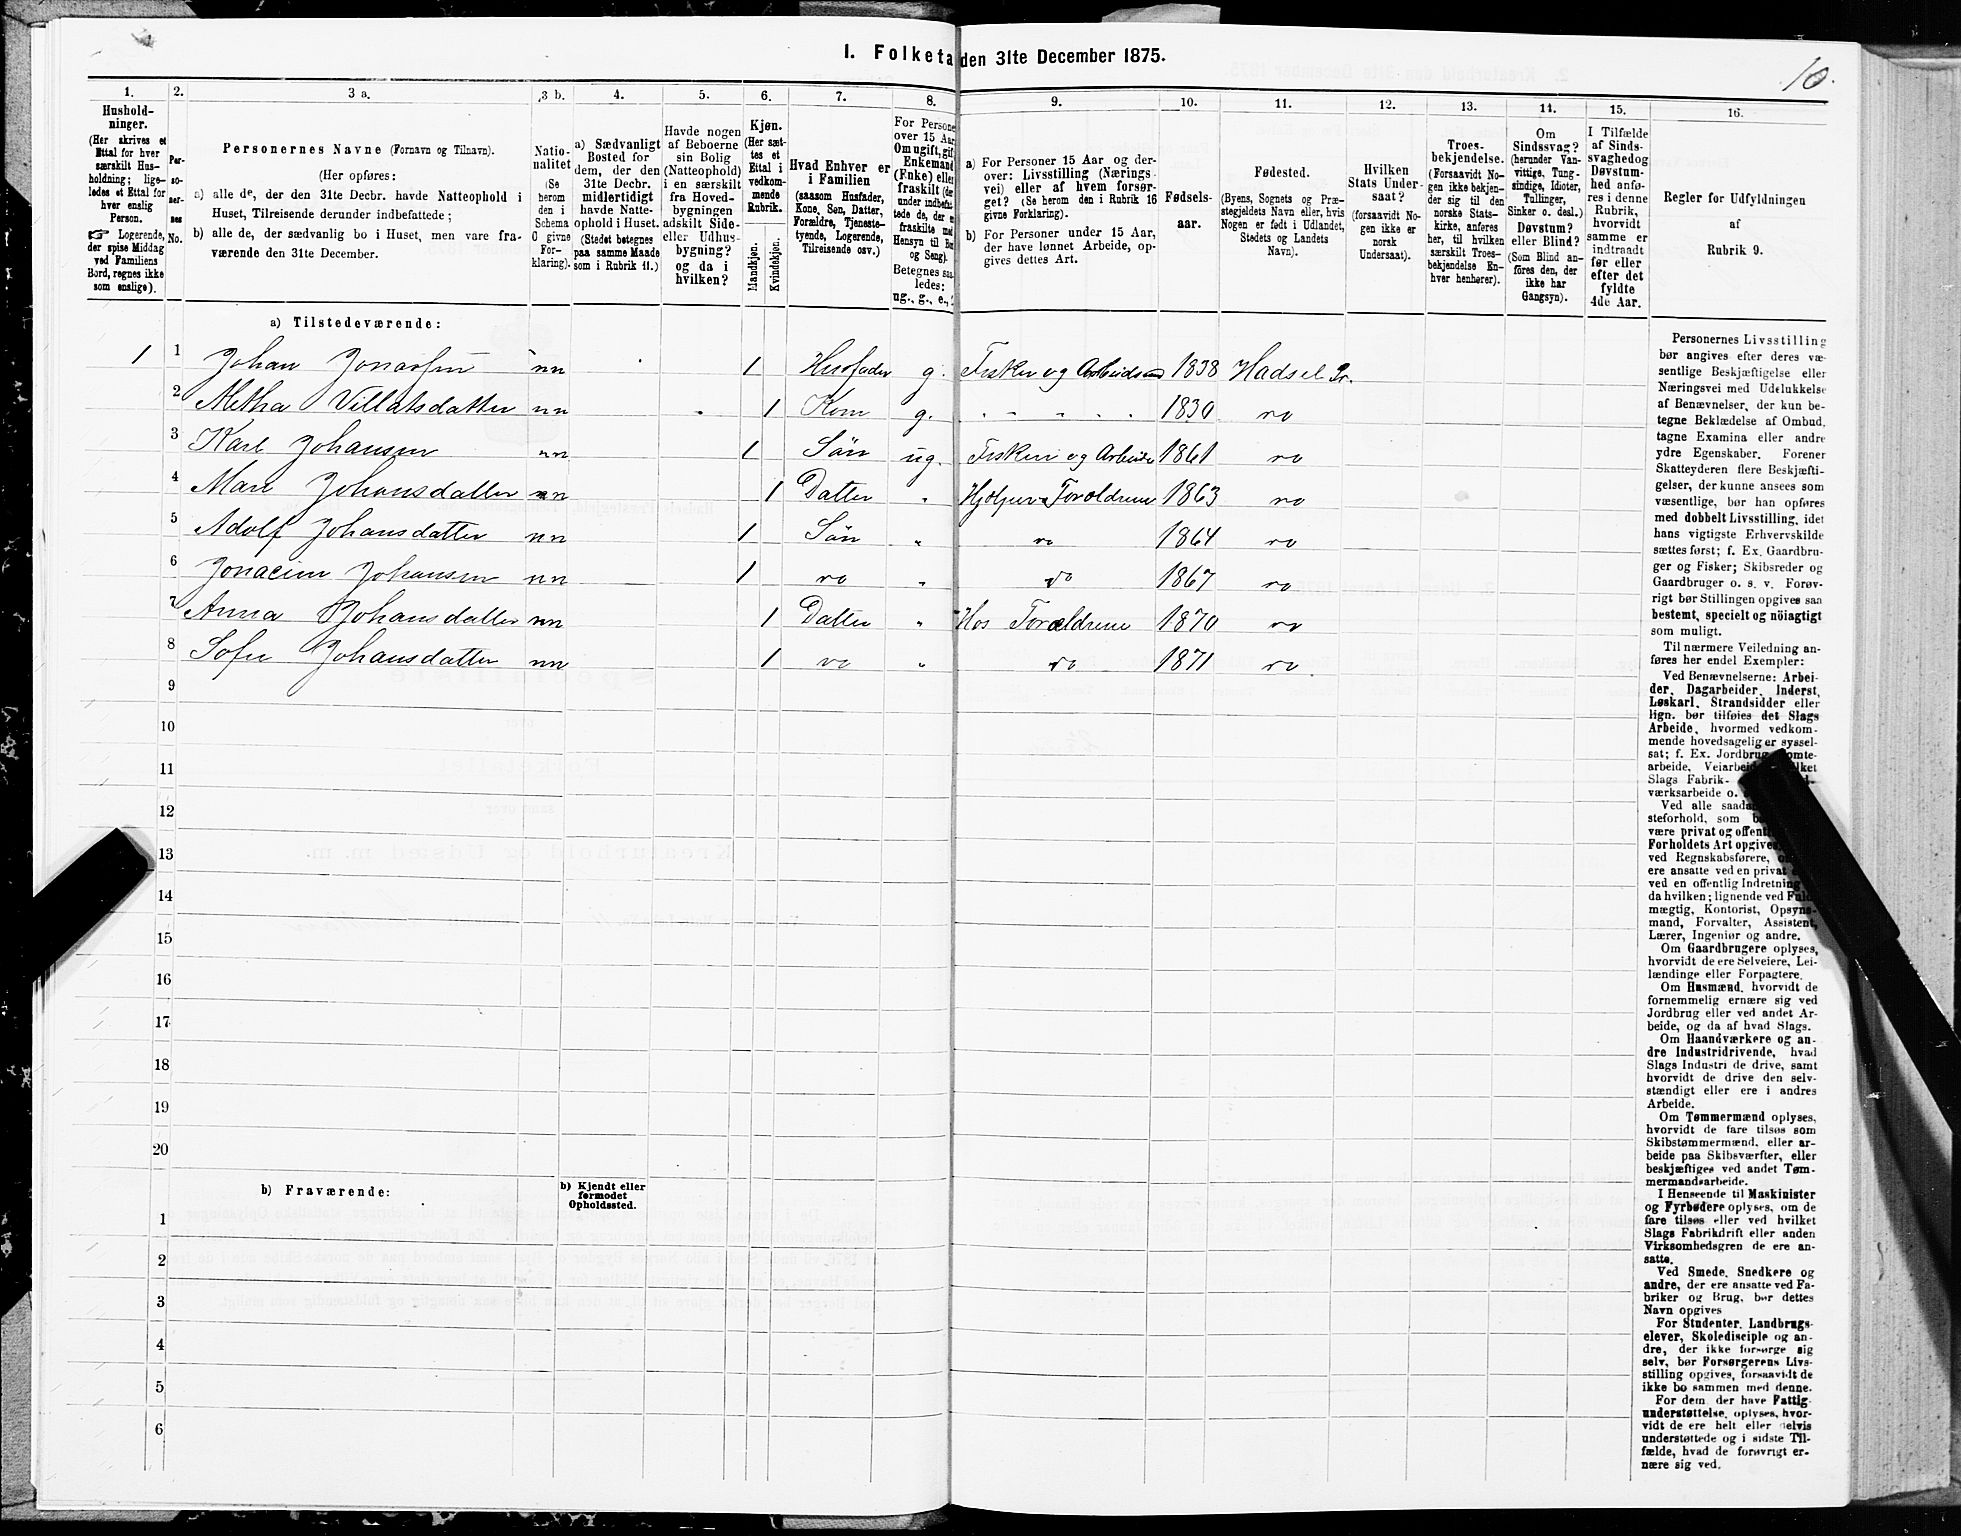 I. Folketa den 31te December 1875.
10.
1. 2. 3 a. 3 b. 4. 5. 6. 7. 8. 9. 10. 11. 12. 13. 14. 15. 16.
Hushold-
ninger.
(Her skrives et
Ettal for hver
særskilt Hus-
holdning; lige-
ledes et Ettal for
hver enslig
Person.
☞ Logerende,
der spise Middag
ved Familiens
Bord, regnes ikke
som enslige).
Per-
so-
ner-
nes
No.
Personernes Navne (Fornavn og Tilnavn).
(Her opføres:
a) alle de, der den 31te Decbr. havde Natteophold i
Huset, Tilreisende derunder indbefattede;
b) alle de, der sædvanlig bo i Huset, men vare fra-
værende den 31te December.
Natio-
nalitet
(Se
herom
den i
Schema
O givne
For-
klaring).
a) Sædvanligt
Bosted for
dem, der den
31te Decbr.
midlertidigt
havde Natte-
ophold i Huset.
(Stedet betegnes
paa samme Maade
som i Rubrik 11.)
Havde nogen
af Beboerne
sin Bolig
(Natteophold)
i en særskilt
fra Hoved-
bygningen
adskilt Side-
eller Udhus-
bygning?
og da i
hvilken?
Kjøn.
(Her sæt-
tes et
Ettal i
vedkom-
mende
Rubrik.
Mandkjøn.
Kvindekjøn.
Hvad Enhver er
i Familien
(saasom Husfader,
Kone, Søn, Datter,
Forældre, Tjeneste-
tyende, Logerende,
Tilreisende osv.)
For Persone
over 15 Aar
Om ugift, gif
Enkemand
(Enke) elle
fraskilt (de
under indbefa
tede de, der e
fraskilte med
Hensyn til Bo
og Seng).
Betegnes saa
ledes:
ug., g., e.,
a) For Personer 15 Aar og der-
over: Livsstilling (Nærings-
vei) eller af hvem forsør-
get? (Se herom den i Rubrik 16
givne Forklaring).
b) For Personer under 15 Aar,
der have lønnet Arbeide, op-
gives dettes Art.
Fødsels-
aar.
Fødested.
(Byens, Sognets og Præ-
stegjeldets Navn eller, hvis
Nogen er født i Udlandet,
Stedets og Landets
Navn).
Hvilken
Stats Under-
saat?
(forsaavidt No-
gen ikke er
norsk
Undersaat).
Troes-
bekjendelse.
(Forsaavidt No-
gen ikke bekjen-
der sig til den
norske Stats-
kirke, anføres
her, til hvilken
særskilt Troes-
bekjendelse En-
hver henhører).
Om
Sindssvag?
(herunder Van-
vittige, Tung-
sindige, Idioter,
Tullinger,
Sinker o. desl.)
Døvstum?
eller Blind?
(Som Blind an-
føres den, der
ikke har
Gangsyn).
I Tilfælde
af Sinds-
svaghedog
Døvstum-
hed anfø-
res i denne
Rubrik,
hvorvidt
samme er
indtraadt
før eller
efter det
fyldte
4de Aar.
Regler for Udfyldningen
af
Rubrik 9.
a) Tilstedeværende:
1 1 Johan Jonassen nn 1 Husfader g. Fisker og Arbeidsmd 1838 Hadsel Pr.
2 Metha Villatsdatter nn 1 Kone g. " " " " 1830 do
3 Karl Johansen nn 1 Søn ug. Fiskeri og Arbeide 1861 do
4 Mare Johansdatter nn 1 Datter " Hjelper Foreldrene 1863 do
5 Adolf Johansdatter nn 1 Søn " do 1864 do
6 Jonacim Johansen nn 1 do " do 1867 do
7 Anna Johansdatter nn 1 Datter " Hos Forældrene 1870 do
8 Sofie Johansdatter nn 1 do " do 1871 do
9
10
11
12
13
14
15
16
17
18
19
20
b) Fraværende:
b) Kjendt eller
formodet
Opholdssted.
1
2
3
4
5
6
Personernes Livsstilling
bør angives efter deres væ-
sentlige Beskjæftigelse eller
Næringsvei med Udelukkelse
af Benævnelser, der kun be-
tegne Beklædelse af Ombud,
tagne Examina eller andre
ydre Egenskaber. Forener
Skatteyderen flere Beskjæfti-
gelser, der kunne ansees som
væsentlige, bør han opføres
med dobbelt Livsstilling, idet
hans vigtigste Erhvervskilde
sættes først; f. Ex. Gaardbru-
ger og Fisker; Skibsreder og
Gaardbruger o. s. v. Forøv-
rigt bør Stillingen opgives saa
bestemt, specielt og nöiagtigt
som muligt.
Til nærmere Veiledning an-
føres her endel Exempler:
Ved Benævnelserne: Arbei-
der, Dagarbeider, Inderst,
Løskarl, Strandsidder eller
lign. bør tilføies det Slags
Arbeide, hvormed vedkom-
mende hovedsagelig er syssel-
sat; f. Ex. Jordbrug, omte-
arbeide, Veiarbei lket
Slags Fabrik-
værksarbeide o.
Ved alle saada
steforhold, som
være privat og offent
Forholdets Art opgives,
ved Regnskabsførere,
ere ansatte ved en privat
ved en offentlig Indretning
da hvilken; lignende ved Fuld
mægtig, Kontorist, Opsyns-
mand, Forvalter, Assistent,
Lærer, Ingeniør og andre.
Om Gaardbrugere oplyses,
hvorvidt de ere Selveiere, Lei-
lændinge eller Forpagtere.
Om Husmænd, hvorvidt de
fornemmelig ernære sig ved
Jordbrug eller ved andet Ar-
beide, og da af hvad Slags.
Om Haandværkere og an-
dre Industridrivende, hvad
Slags Industri de drive, samt
hvorvidt de drive den selv-
stændigt eller ere i andres
Arbeide.
Om Tømmermænd oplyses,
hvorvidt de fare tilsøs som
Skibstømmermænd, eller ar-
beide paa Skibsværfter, eller
beskjæftiges ved andet Tøm-
mermandsarbeide.
I Henseende til Maskinister
og Fyrbødere oplyses, om de
fare tilsøs eller ved hvilket
Slags Fabrikdrift eller anden
Virksomhedsgren de ere an-
satte.
Ved Smede, Snedkere og
andre, der ere ansatte ved Fa-
briker og Brug, bør dettes
Navn opgives
For Studenter, Landbrugs-
elever, Skoledisciple og an-
dre, der ikke forsørge sig
selv, bør Forsørgerens Livs-
stilling opgives, forsaavidt de
ikke bo sammen med denne.
For dem, der have Fattig-
understøttelse, oplyses, hvor-
vidt de ere helt eller delvis
understøttede og i sidste Til-
fælde, hvad de forøvrigt er-
nære sig ved.